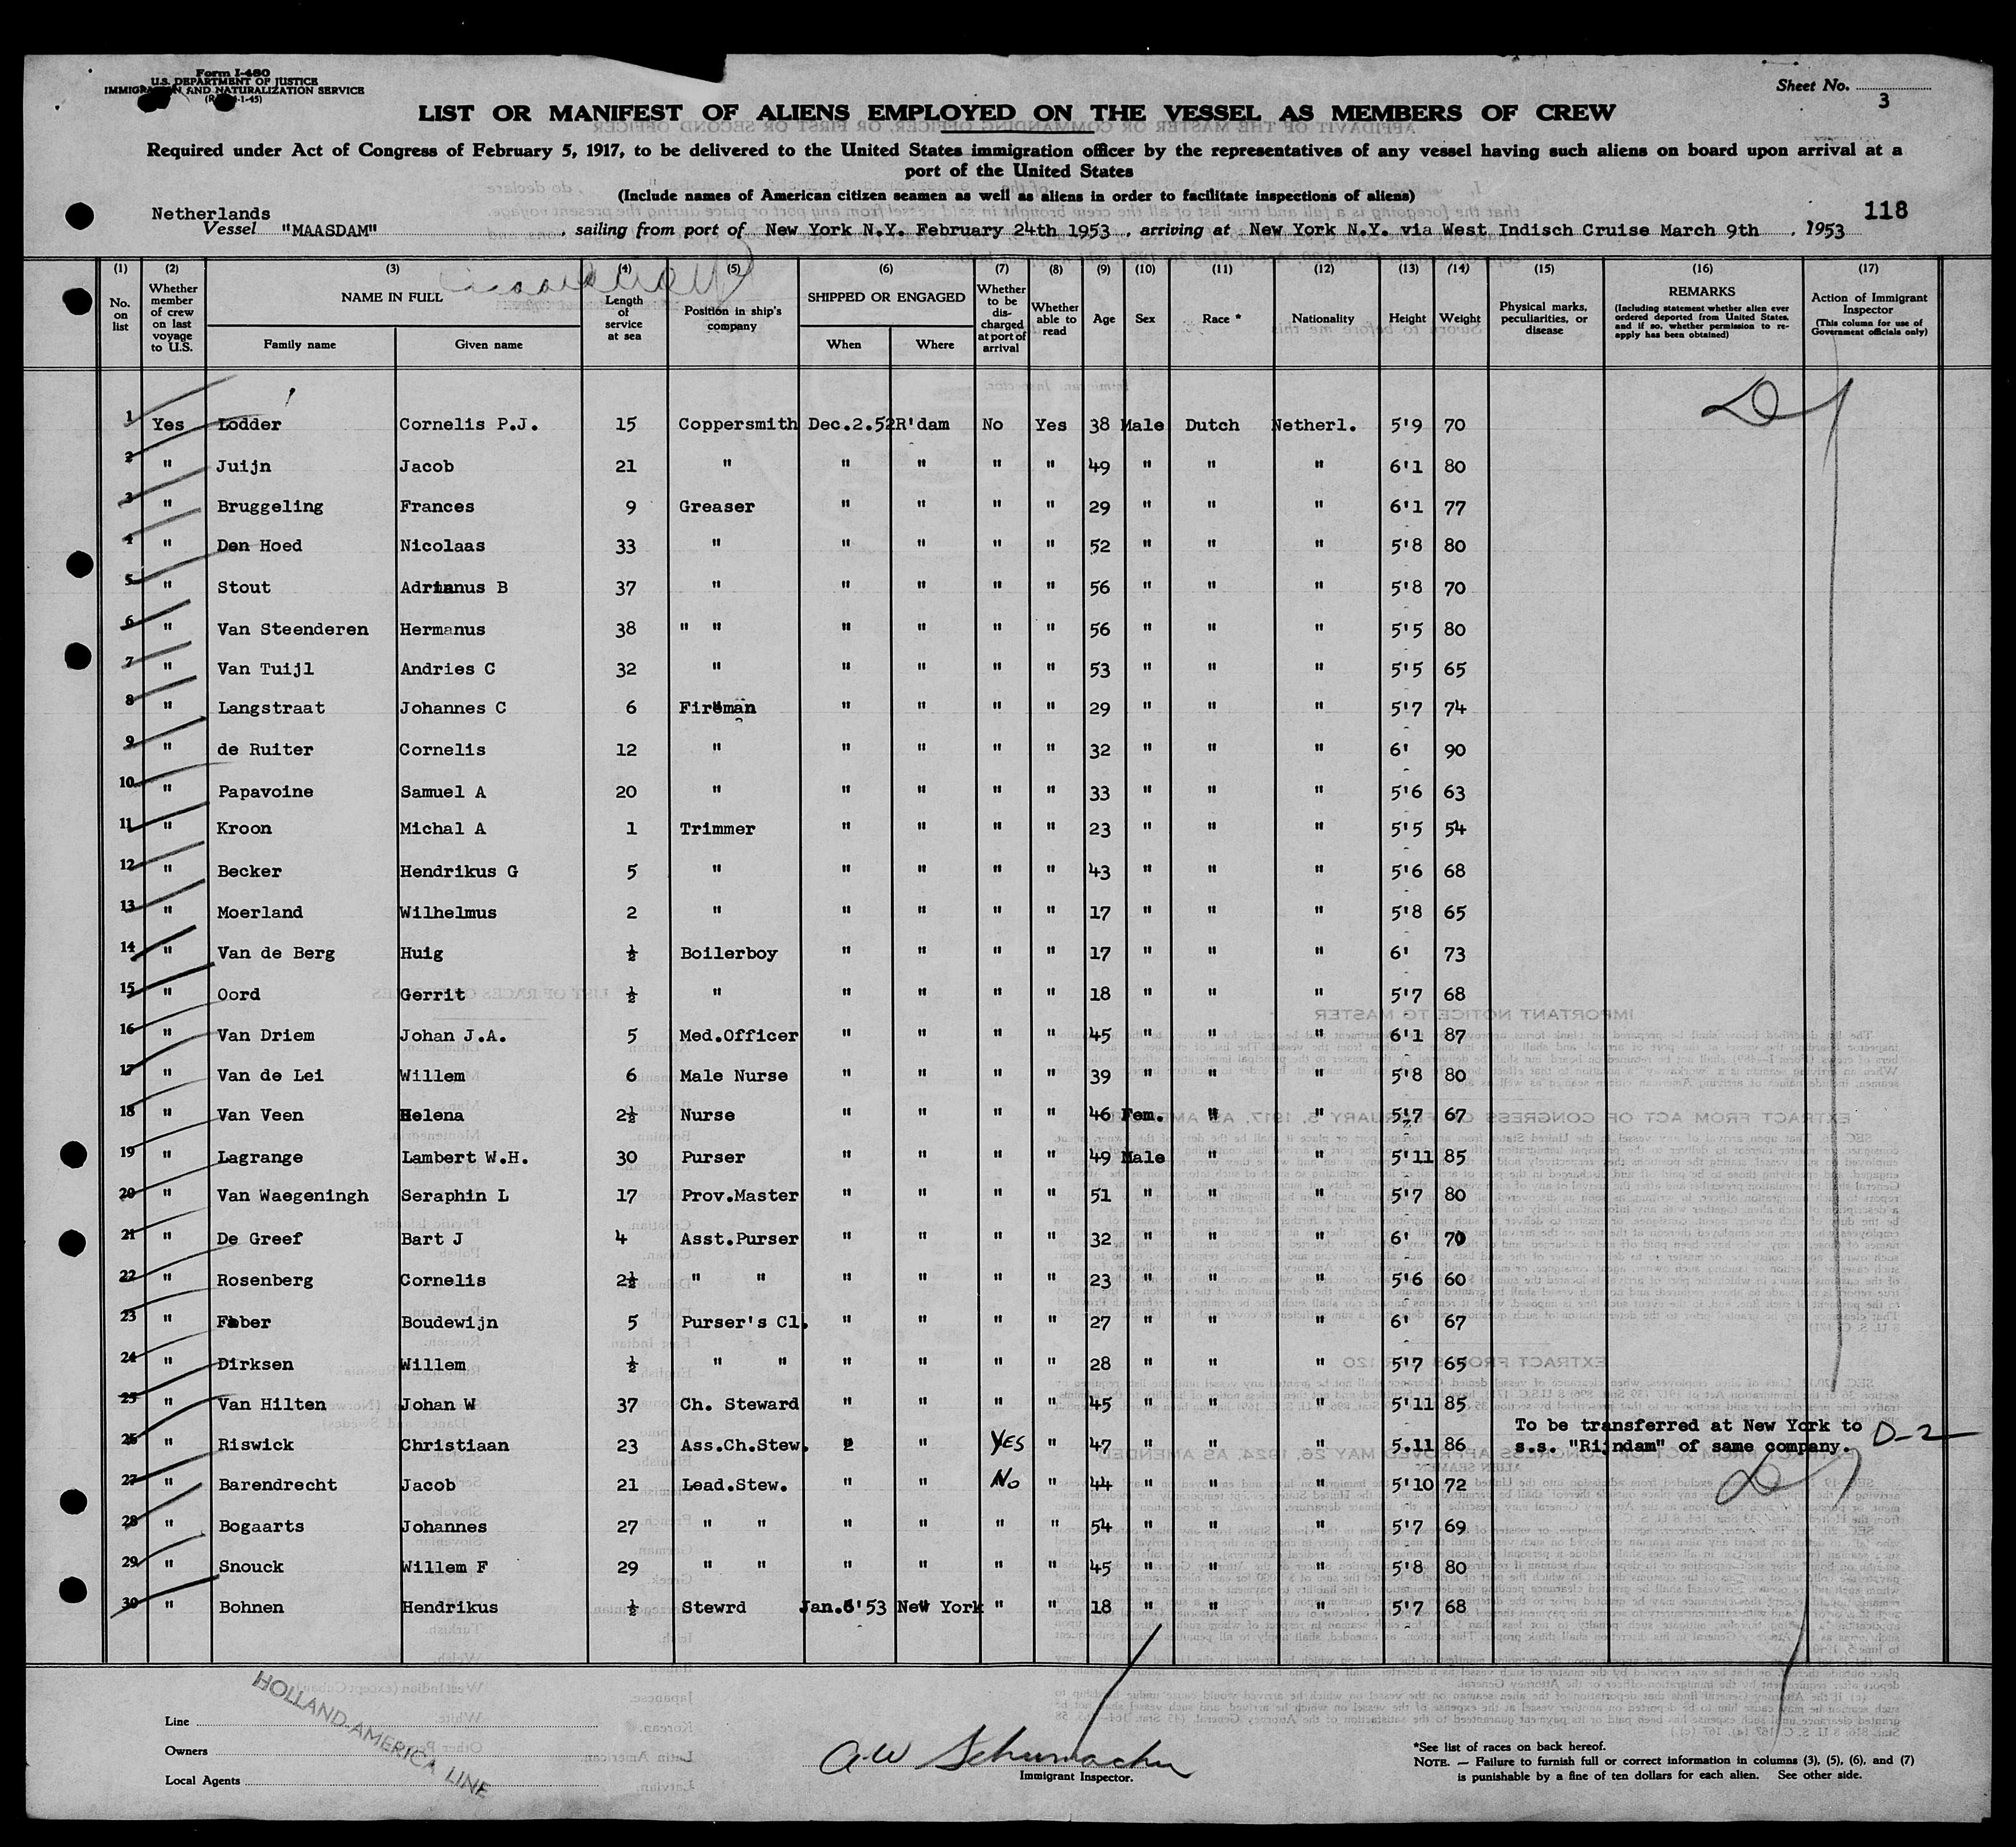 Form I-480
U.S. DEPARTMENT OF JUSTICE
IMMIGRATION AND NATURALIZATION SERVICE
Sheet No. 3
LIST OR MANIFEST OF ALIENS EMPLOYED ON THE VESSEL AS MEMBERS OF CREW
Required under Act of Congress of February 5, 1917, to be delivered to the United States immigration officer by the representatives of any vessel having such aliens on board upon arrival at a
port of the United States
(Include names of American citizen seamen as well as aliens in order to facilitate inspections of aliens)
118
Netherlands
Vessel "MAASDAM", sailing from port of New York N.Y. February 24th 1953, arriving at New York N.Y. via West Indisch Cruise March 9th, 1953
(1) (2) (3) (4) (5) (6) (7) (8) (9) (10) (11) (12) (13) (14) (15) (16) (17)
No. on list
Whether member of crew on last voyage to U.S.
NAME IN FULL
Family name
Given name
Length of service at sea
Position in ship's company
SHIPPED OR ENGAGED
When
Where
Whether to be discharged at port of arrival
Whether able to read
Age
Sex
Race *
Nationality
Height
Weight
Physical marks, peculiarities, or disease
REMARKS
(Including statement whether alien ever ordered deported from United States, and if so, whether permission to re-apply has been obtained)
Action of Immigrant Inspector
(This column for use of Government officials only)
1 Yes Lodder Cornelis P.J. 15 Coppersmith Dec.2.52 R'dam No Yes 38 Male Dutch Netherl. 5'9 70
2 " Juijn Jacob 21 " " " " " 49 " " " 6'1 80
3 " Bruggeling Frances 9 Greaser " " " " 29 " " " 6'1 77
4 " Den Hoed Nicolaas 33 " " " " " 52 " " " 5'8 80
5 " Stout Adrianus B 37 " " " " " 56 " " " 5'8 70
6 " Van Steenderen Hermanus 38 " " " " " " 56 " " " 5'5 80
7 " Van Tuijl Andries C 32 " " " " " 53 " " " 5'5 65
8 " Langstraat Johannes C 6 Fireman " " " " 29 " " " 5'7 74
9 " de Ruiter Cornelis 12 " " " " " 32 " " " 6' 90
10 " Papavoine Samuel A 20 " " " " " 33 " " " 5'6 63
11 " Kroon Michal A 1 Trimmer " " " " 23 " " " 5'5 54
12 " Becker Hendrikus G 5 " " " " " 43 " " " 5'6 68
13 " Moerland Wilhelmus 2 " " " " " 17 " " " 5'8 65
14 " Van de Berg Huig ½ Boilerboy " " " " 17 " " " 6' 73
15 " Oord Gerrit ½ " " " " " 18 " " " 5'7 68
16 " Van Driem Johan J.A. 5 Med.Officer " " " " 45 " " " 6'1 87
17 " Van de Lei Willem 6 Male Nurse " " " " 39 " " " 5'8 80
18 " Van Veen Helena 2½ Nurse " " " " 46 Fem. " " 5'7 67
19 " Lagrange Lambert W.H. 30 Purser " " " " 49 Male " " 5'11 85
20 " Van Waegeningh Seraphin L 17 Prov.Master " " " " 51 " " " 5'7 80
21 " De Greef Bart J 4 Asst.Purser " " " " 32 " " " 6' 70
22 " Rosenberg Cornelis 2½ " " " " " " 23 " " " 5'6 60
23 " Faber Boudewijn 5 Purser's Cl. " " " " 27 " " " 6' 67
24 " Dirksen Willem ½ " " " " " " 28 " " " 5'7 65
25 " Van Hilten Johan W 37 Ch. Steward " " " " 45 " " " 5'11 85
26 " Riswick Christiaan 23 Ass.Ch.Stew. " " YES " 47 " " " 5.11 86 To be transferred at New York to
s.s. "Rijndam" of same company. D-2
27 " Barendrecht Jacob 21 Lead.Stew. " " No " 44 " " " 5'10 72
28 " Bogaarts Johannes 27 " " " " " " 54 " " " 5'7 69
29 " Snouck Willem F 29 " " " " " " 45 " " " 5'8 80
30 " Bohnen Hendrikus ½ Stewrd Jan.6'53 New York " " 18 " " " 5'7 68
HOLLAND-AMERICA LINE
Line
Owners
Local Agents
A.W Schumacher
Immigrant Inspector.
*See list of races on back hereof.
NOTE. — Failure to furnish full or correct information in columns (3), (5), (6), and (7)
is punishable by a fine of ten dollars for each alien. See other side.